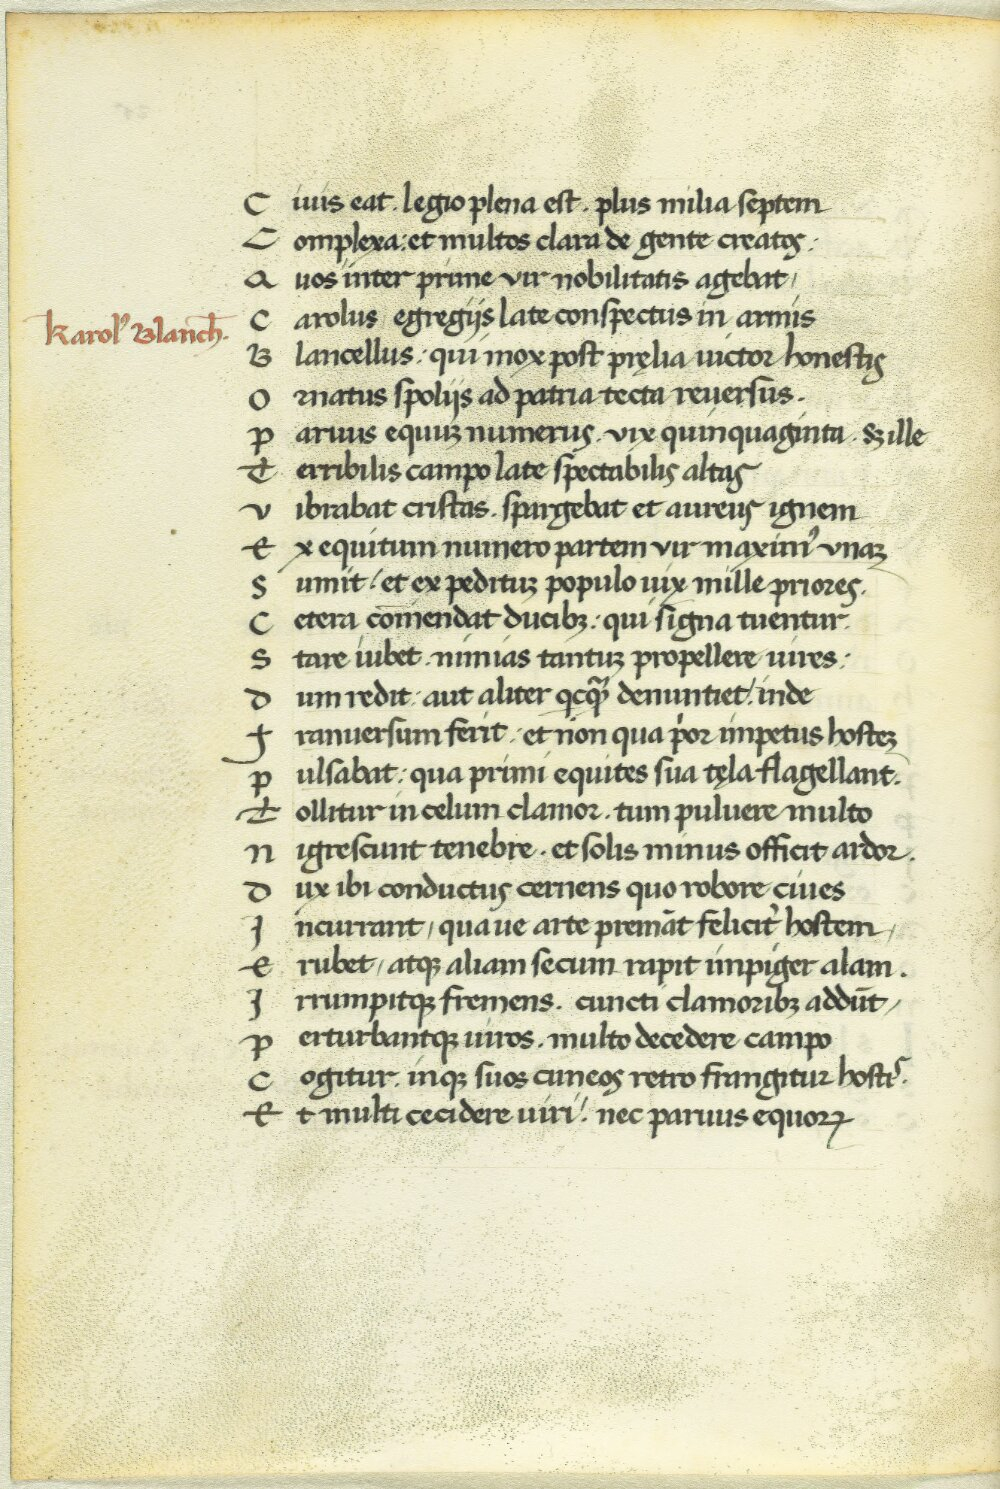 C iuis eat. legio plena est. plus milia septem
C omplexa: et multos clara de gente creatos:
A uos inter prime vir nobilitatis agebat/
karolꝰ Blanch̄.
C arolus/ egregijs late conspectus in armis
B lancellus: qui mox post pręlia victor honestis
O rnatus spolijs ad patria tecta reuersus.
P aruus equuꝫ numerus. vix quinquaginta. Sꝫ ille
T erribilis campo late spectabilis altas
V ibrabat cristas. spargebat et aureus ignem
E x equitum numero partem vir maximꝰ vnaꝫ
S umit/ et expedituꝫ populo uix mille priores.
C etera com̄endat ducibꝫ: qui signa tuentur.
S tare iubet. nimias tantuꝫ propellere uires:
D um redit: aut aliter denuntiet/ inde
T ranuersum ferit: et non qua pͥor impetus hosteꝫ
P ulsabat: qua primi equites sua tęla flagellant.
T ollitur in celum clamor. tum puluere multo
N igrescunt tenebre. et solis minus officit ardor.
D ux ibi conductus cernens quo robore ciues
J ncurrant/ quaue arte premāt felicit᾽ hostem/
E rubet/ atqꝫ aliam secum rapit impiger alam.
J rrumpitqꝫ fremens. cuncti clamoribꝫ addūt/
P erturbantqꝫ uiros. multo decedere campo
C ogitur. inqꝫ suos cuneos retro frangitur hostis.
E t multi cecidere uiri/. nec paruus equoꝝ